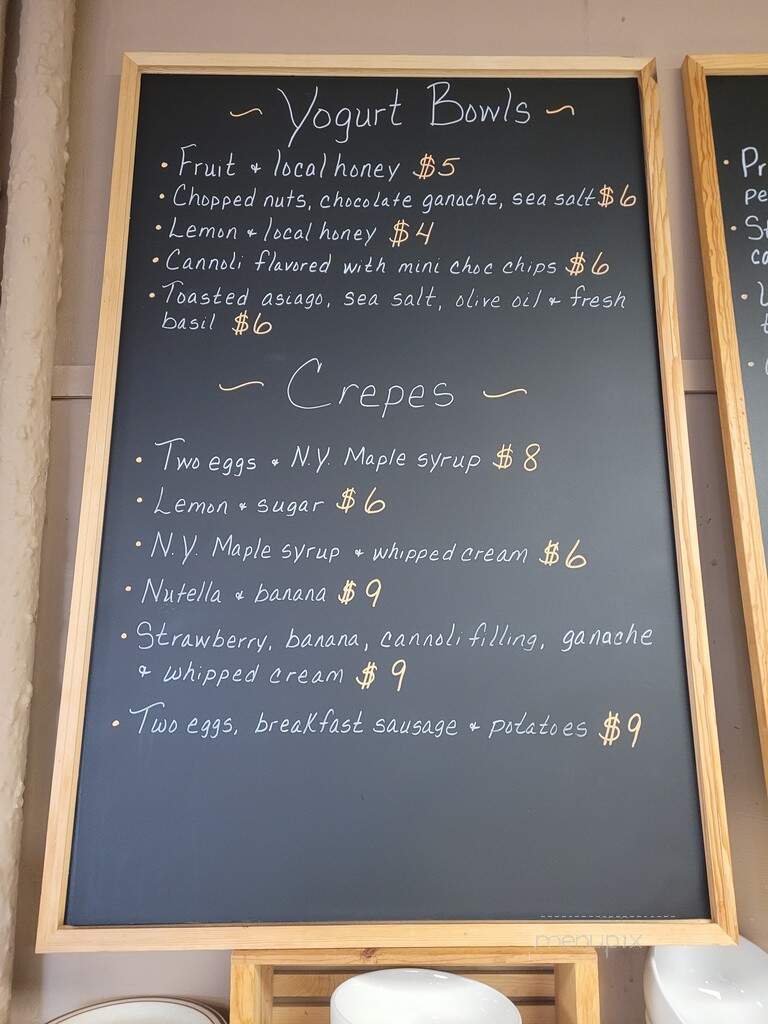 ~ Yogurt Bowls ~
• Fruit & local honey $5
• Chopped nuts, chocolate ganache, sea salt $6
• Lemon & local honey $4
• Cannoli flavored with mini choc chips $6
• Toasted asiago, sea salt, olive oil & fresh
basil $6
~ Crepes ~
• Two eggs & N.Y. Maple syrup $8
• Lemon & sugar $6
• N.Y. Maple syrup & whipped cream $6
• Nutella & banana $9
• Strawberry, banana, cannoli filling, ganache
& whipped cream $9
• Two eggs, breakfast sausage & potatoes $9
menupix